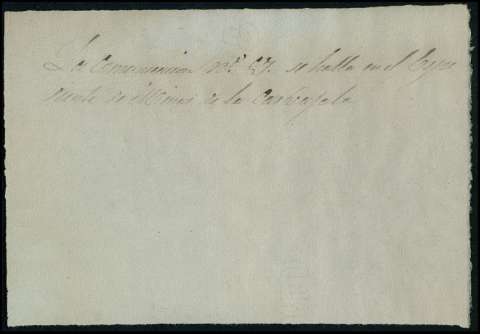 La Comunicacion Nº. 27. se halla en el Expe
diente de Minas de la Carvajala